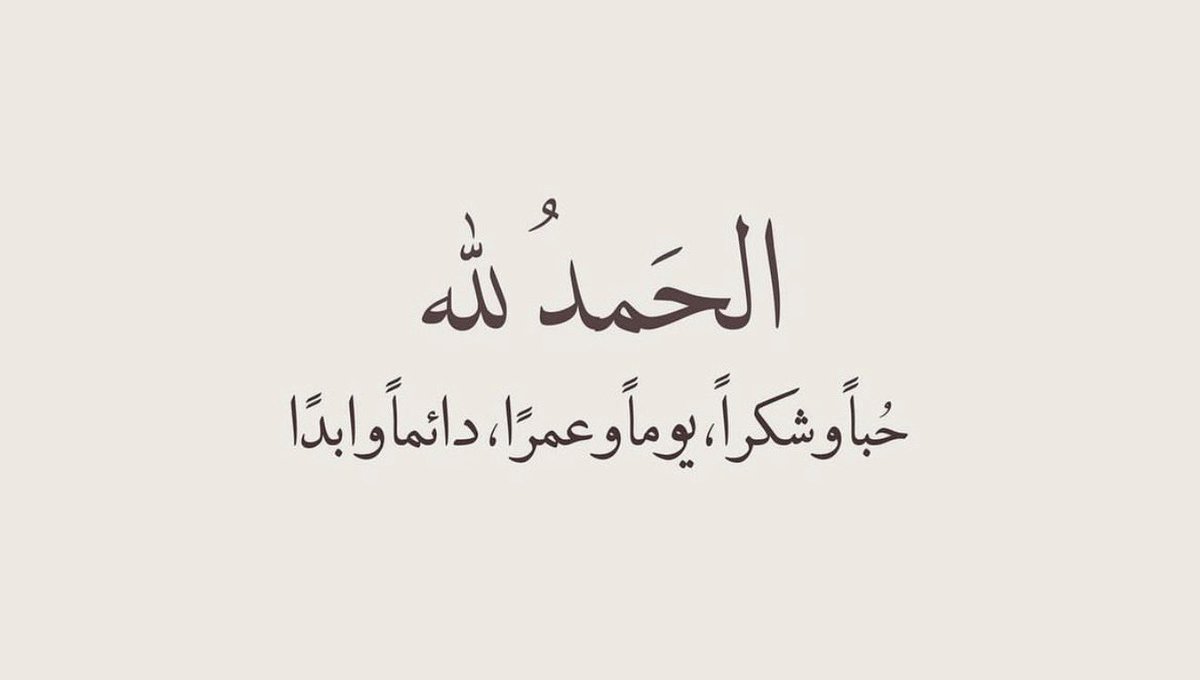 الحَمدُ لله
حُباً وشكراً، يوماً وعمرًا، دائماً وابدًا